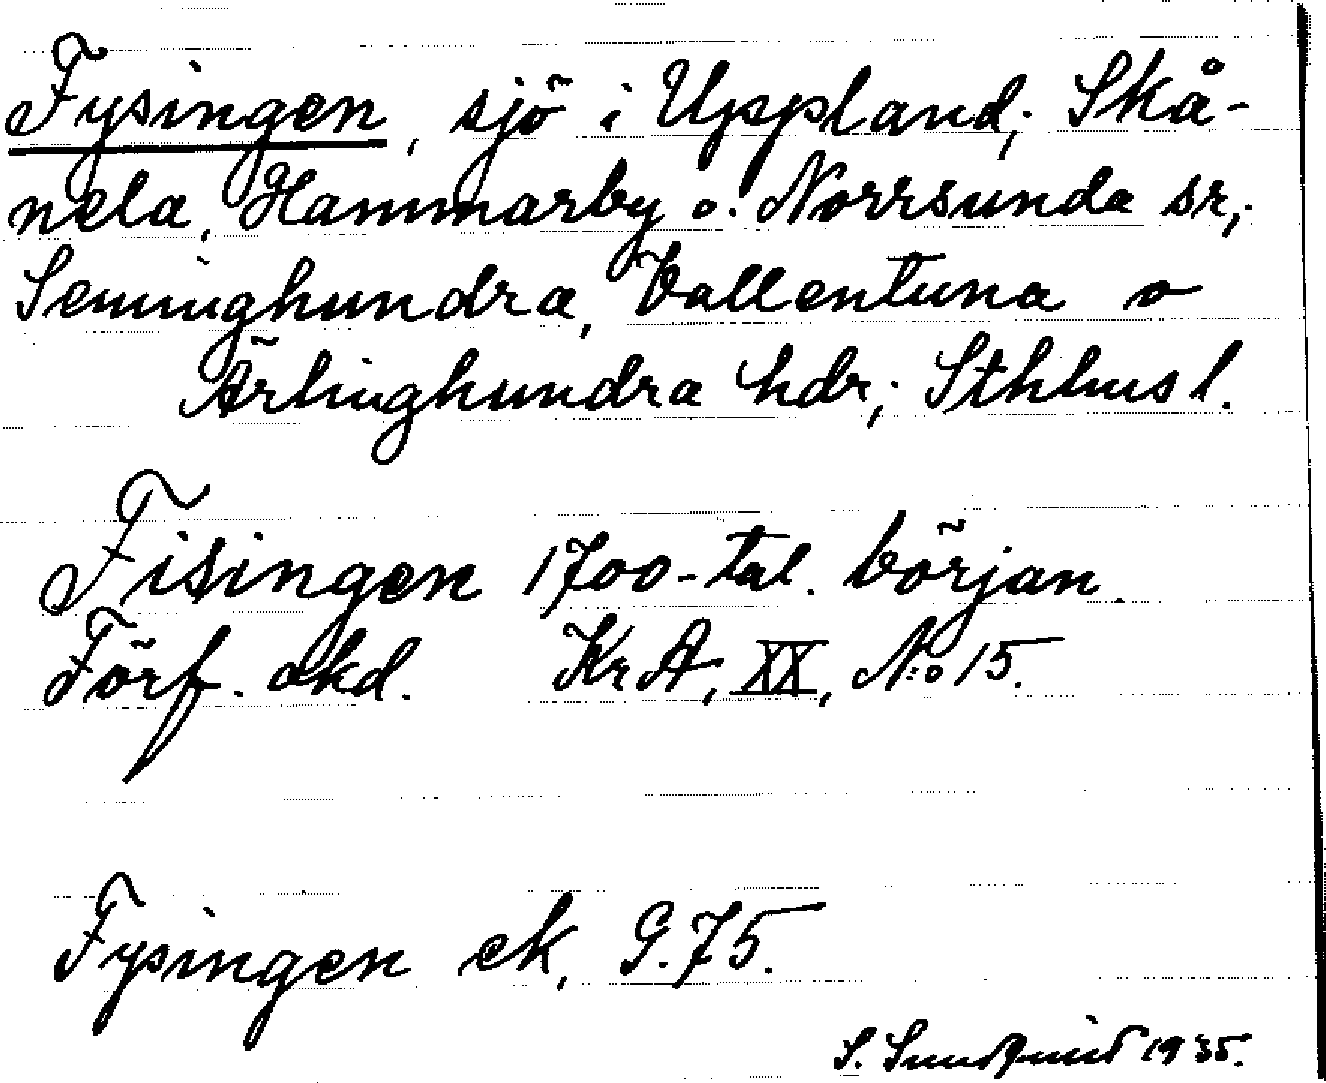 Fysingen, sjö i Uppland; Skå-
nela, Hammarby o. Norrsunda sr,
Seminghundra, Vallentuna o
Ärlinghundra hdr; Sthlms l.
Fisingen 1700-tal. början.
Förf. okd. KrA, XX, N:o 15.
Fysingen ek, G. 75.
S. Sundqvist 1935.